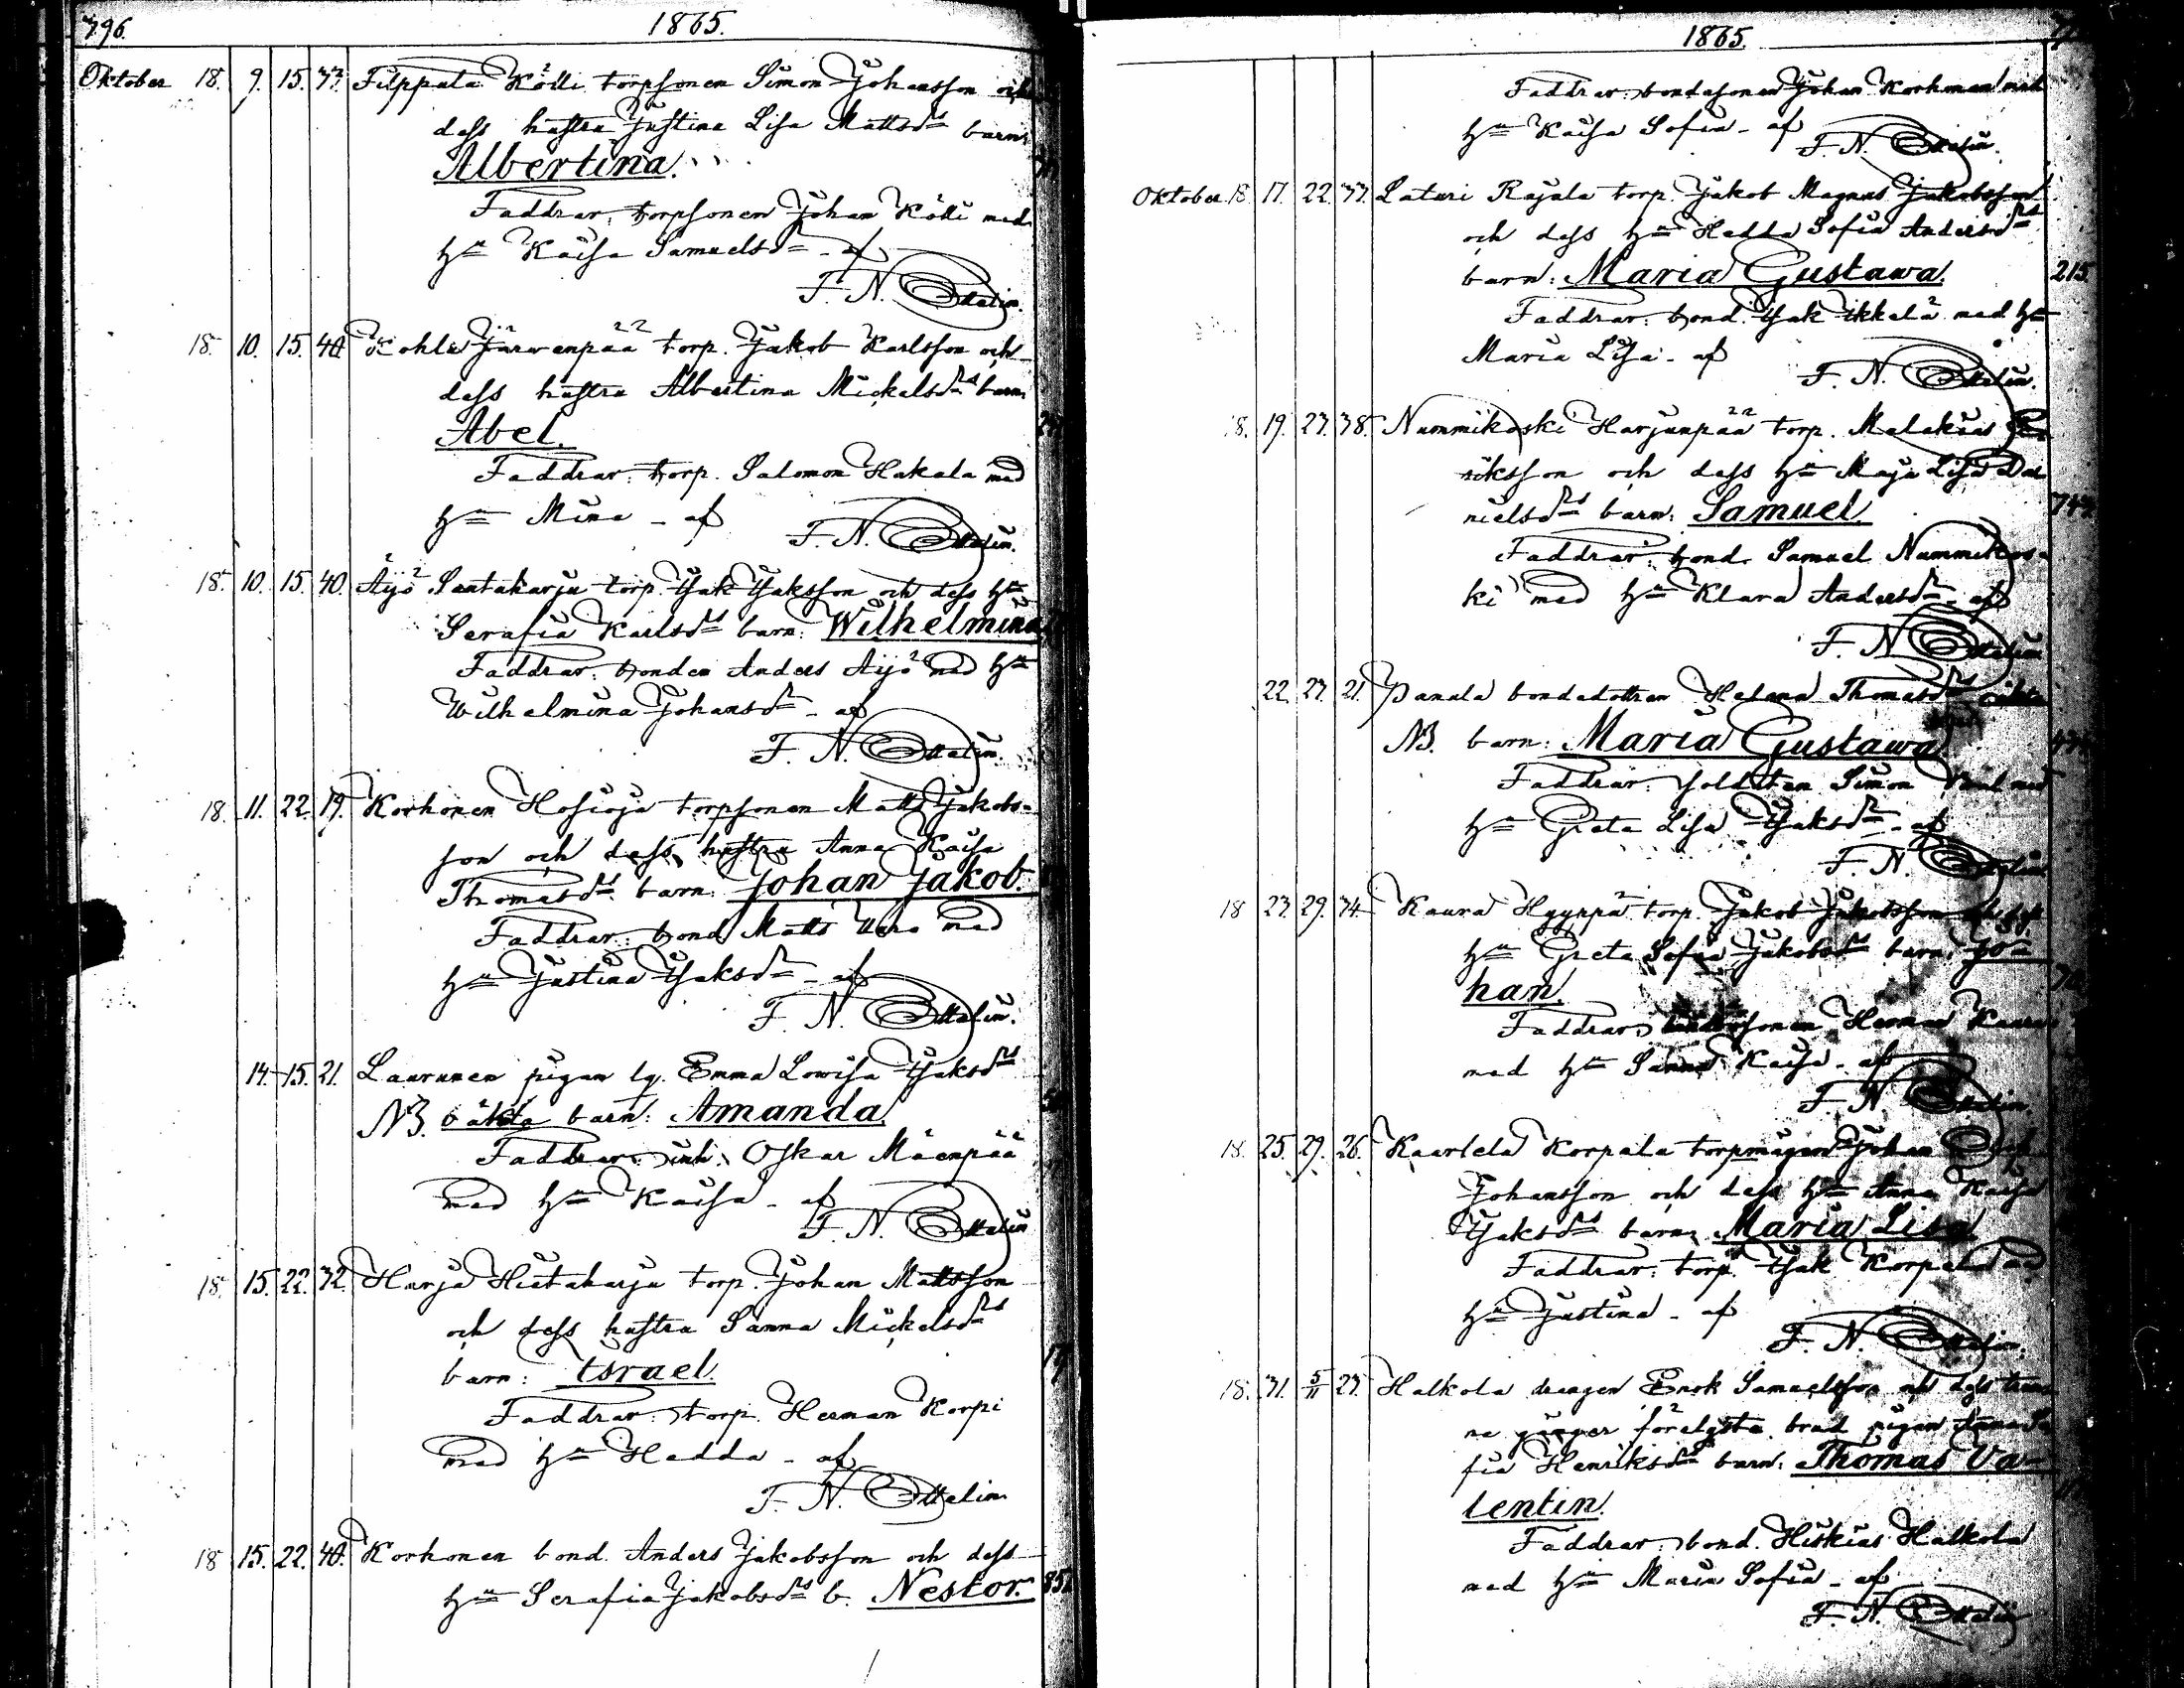 796.
1865.
Oktober 18. 9. 15. 33. Filppula Kölli torpsonen Simon Johansson och
dess hustru Justina Lisa Mattsdrs barn:
Albertina.
Faddrar: torpsonen Johan Kölli med
hu Kaisa Samuelsdr - af
F. N. Ottelin.
18. 10. 15. 40. Järwenpää torp. Jakob Karlsson och
dess hustru Albertina Mickelsdrs barn:
Abel.
Faddrar: torp. Salomon Hakala med
hu Mina - af
F. N. Ottelin.
18. 10. 15. 40. Äijö Santaharju torp. Isak Isaksson och dess hu
Serafia Karlsdrs barn: Wilhelmina
Faddrar: bonden Anders Äijö med hu
Wilhelmina Johansdr - af
F. N. Ottelin.
18. 11. 22. 19. Korhonen Hosioja torpsonen Matts Jakobs-
son och dess hustru Anna Kaisa
Thomasdrs barn: Johan Jakob.
Faddrar: bond. Matts med
hu Justina Isaksdr - af
F. N. Ottelin.
14. 15. 21. Laurunen pigan lg. Emma Lowisa Isaksdrs
NB. oäkta barn: Amanda.
Faddrar: inh. Oskar Mäenpää
med hu Kaisa - af
F. N. Ottelin
18. 15. 22. 32. Harja Hietaharju torp. Johan Mattsson
och dess hustru Sanna Mickelsdrs
barn: Israel.
Faddrar: torp. Herman Korpi
med hu Hedda - af
F. N. Ottelin
18 15. 22. 40. Korhonen bond. Anders Jakobsson och dess
hu Serafia Jakobsdrs b. Nestor.
1865.
Faddrar: bondesonen Johan Korhonen med
hu Kaisa Sofia - af
F. N. Ottelin.
Oktober 18. 17. 22. 33. Laturi Rajala torp. Jakob Magnus Jakobsson
och dess hu Hedda Sofia Andersdrs
barn: Maria Gustawa. 215
Faddrar: bond. Isak Ikkelä med hu
Maria Lisa - af
F. N. Ottelin.
18. 19. 23. 38. Nummikoski Harjunpää torp. Malakias E-
riksson och dess hu Maja Lisa Da-
nielsdrs barn: Samuel.
Faddrar: bond. Samuel Nummikos-
ki med hu Klara Andersdr - af
F. N. Ottelin
22. 23. 21. Panula bondedottren Helena Thomasdrs oäkta
NB. barn: Maria Gustawa.
Faddrar: soldaten Simon med
hu Greta Lisa Isaksdr - af
F. N. Ottelin
18 23. 29. 34. Kaura Hyyppä torp. Jakob Jakobsson och dess
hu Greta Sofia Jakobsdrs barn: Jo-
han.
Faddrar: Herman Kaura
med hu Sanna Kaisa - af
F. N. Ottelin.
18. 25. 29. 26. Kaarlela Korpela torpmågen Johan
Johansson och dess hu Anna Kaisa
Isaksdrs barn: Maria Lisa
Faddrar: torp. Isak Korpela med
hu Justina - af
F. N. Ottelin.
18. 31. 5/11 23. Halkola drengen Enok Samuelsson och dess trenne
ne gånger förelysta brud pigan Anna So-
fia Henriksdrs barn: Thomas Va-
lentin.
Faddrar: bond. Hiskias Halkola
med hu Maria Sofia - af
F. N. Ottelin